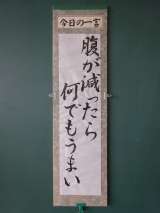 今日の一言
腹が減ったら
何でもうまい